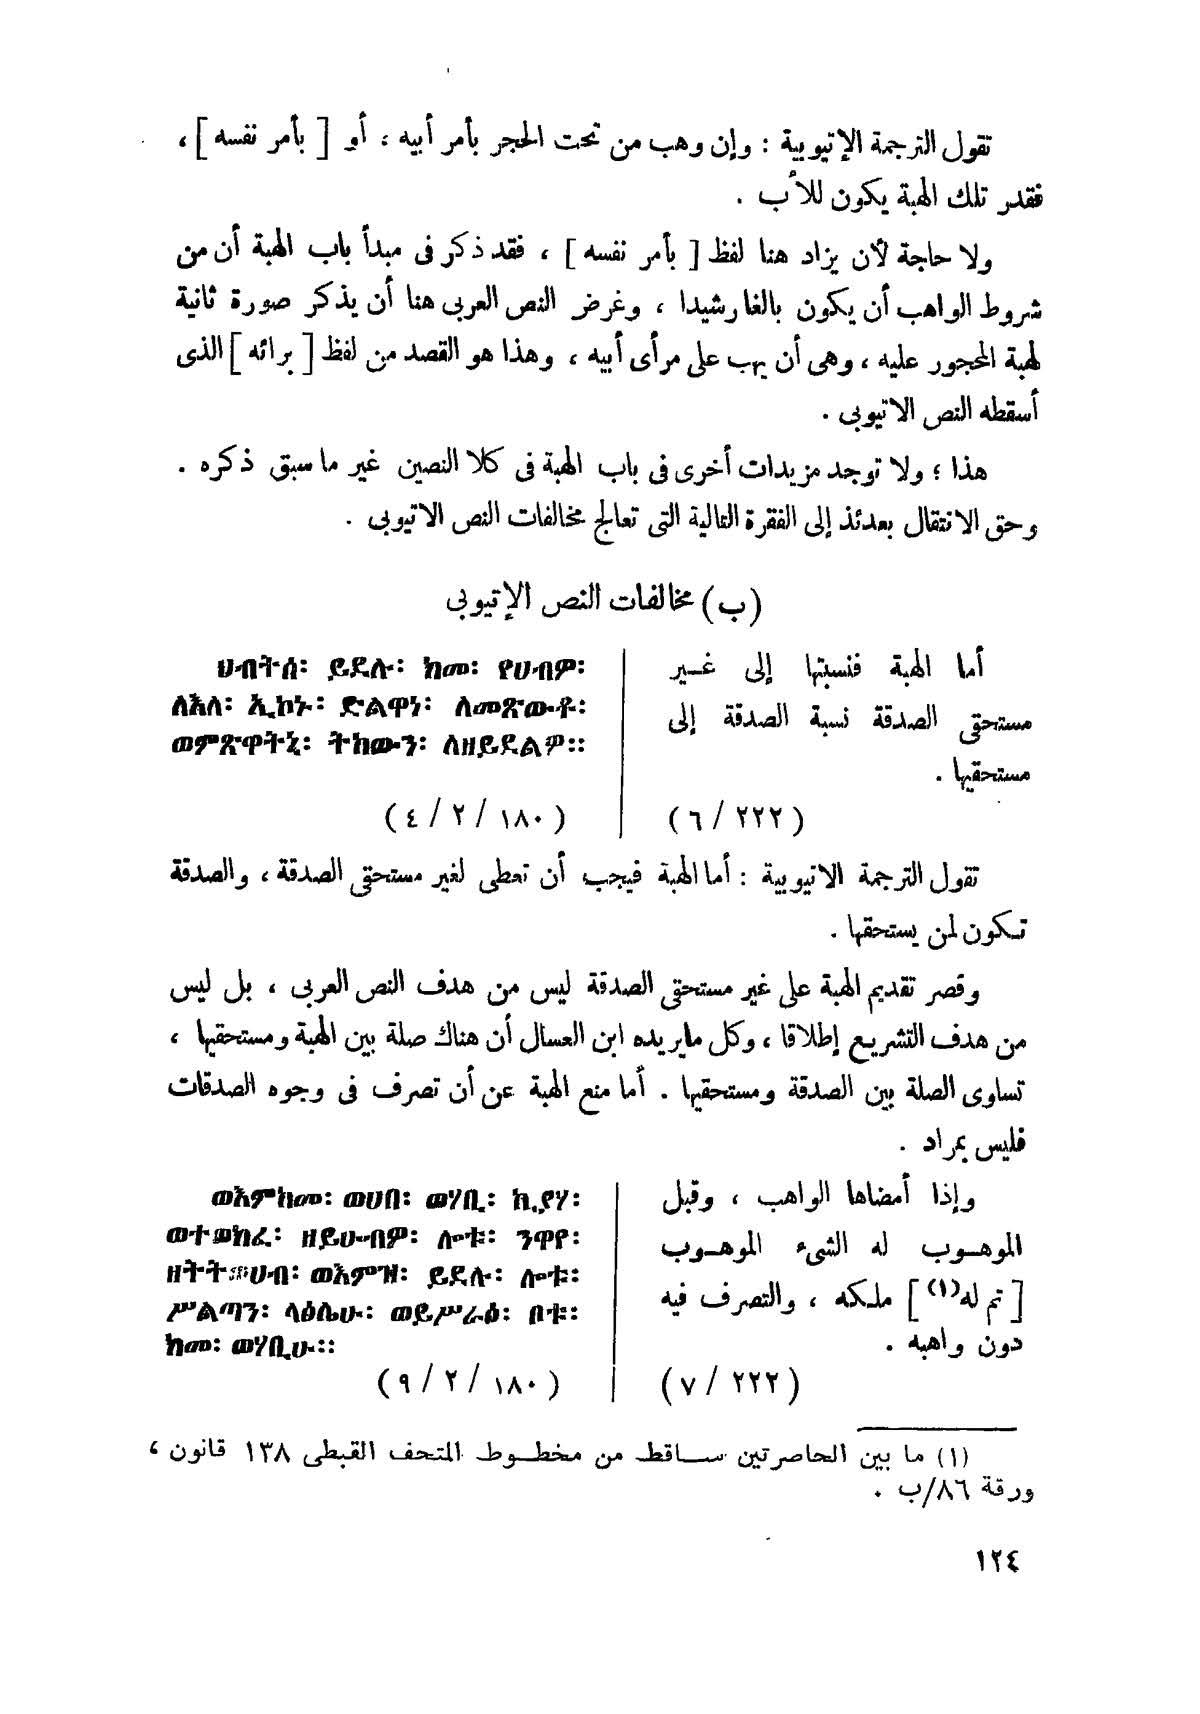 تقول الترجمة الإتيوبية : وإن وهب من تحت الحجر بأمر أبيه ، أو [ بأمر نفسه ] ،
فقدر تلك الهبة يكون للأب .
ولا حاجة لأن يزاد هنا لفظ [ بأمر نفسه ] ، فقد ذكر فى مبدأ باب الهبة أن من
شروط الواهب أن يكون بالغا رشيدا ، وغرض النص العربى هنا أن يذكر صورة ثانية
لهبة المحجور عليه ، وهى أن يهب على مرأى أبيه ، وهذا هو القصد من لفظ [ برائه ] الذى
أسقطه النص الاتيوبى .
هذا ؛ ولا توجد مزيدات أخرى فى باب الهبة فى كلا النصين غير ما سبق ذكره .
وحق الانتقال بعدئذ إلى الفقرة التالية التى تعالج مخالفات النص الاتيوبى .
(ب) مخالفات النص الإتيوبى
أما الهبة فنسبتها إلى غــير
مستحقى الصدقة نسبة الصدقة إلى
مستحقيها .
( ٢٢٢ / ٦ )
ሀብትሰ፡ ይደሉ፡ ከመ፡ የሀብዎ፡
ለእለ፡ ኢኮኑ፡ ድልዋነ፡ ለመጽውቶ፡
ወምጽዋትኒ፡ ትከውን፡ ለዘይደልዎ፡፡
( ١٨٠ / ٢ / ٤ )
تقول الترجمة الاتيوبية : أما الهبة فيجب أن تعطى لغير مستحقى الصدقة ، والصدقة
تـكون لمن يستحقها .
وقصر تقديم الهبة على غير مستحقى الصدقة ليس من هدف النص العربى ، بل ليس
من هدف التشريـع إطلاقا ، وكل ما يريده ابن العسال أن هناك صلة بين الهبة ومستحقيها ،
تساوى الصلة بين الصدقة ومستحقيها . أما منع الهبة عن أن تصرف فى وجوه الصدقات
فليس بمراد .
وإذا أمضاها الواهب ، وقبل
الموهـوب له الشىء الموهـوب
[ تم له(١) ] ملـكه ، والتصرف فيه
دون واهبه .
( ٢٢٢ / ٧ )
ወእምከመ፡ ወሀበ፡ ወሃቢ፡ ኪያሃ፡
ወተወክፈ፡ ዘይሁብዎ፡ ሎቱ፡ ንዋየ፡
ወእምዝ፡ ይደሉ፡ ሎቱ፡
ሥልጣን፡ ላዕሌሁ፡ ወይሥራዕ፡ ቦቱ፡
ከመ፡ ወሃቢሁ፡፡
( ١٨٠ / ٢ / ٩ )
(١) ما بين الحاصرتين ســاقط من مخطــوط المتحف القبطى ١٣٨ قانون ،
ورقة ٨٦/ب .
١٢٤